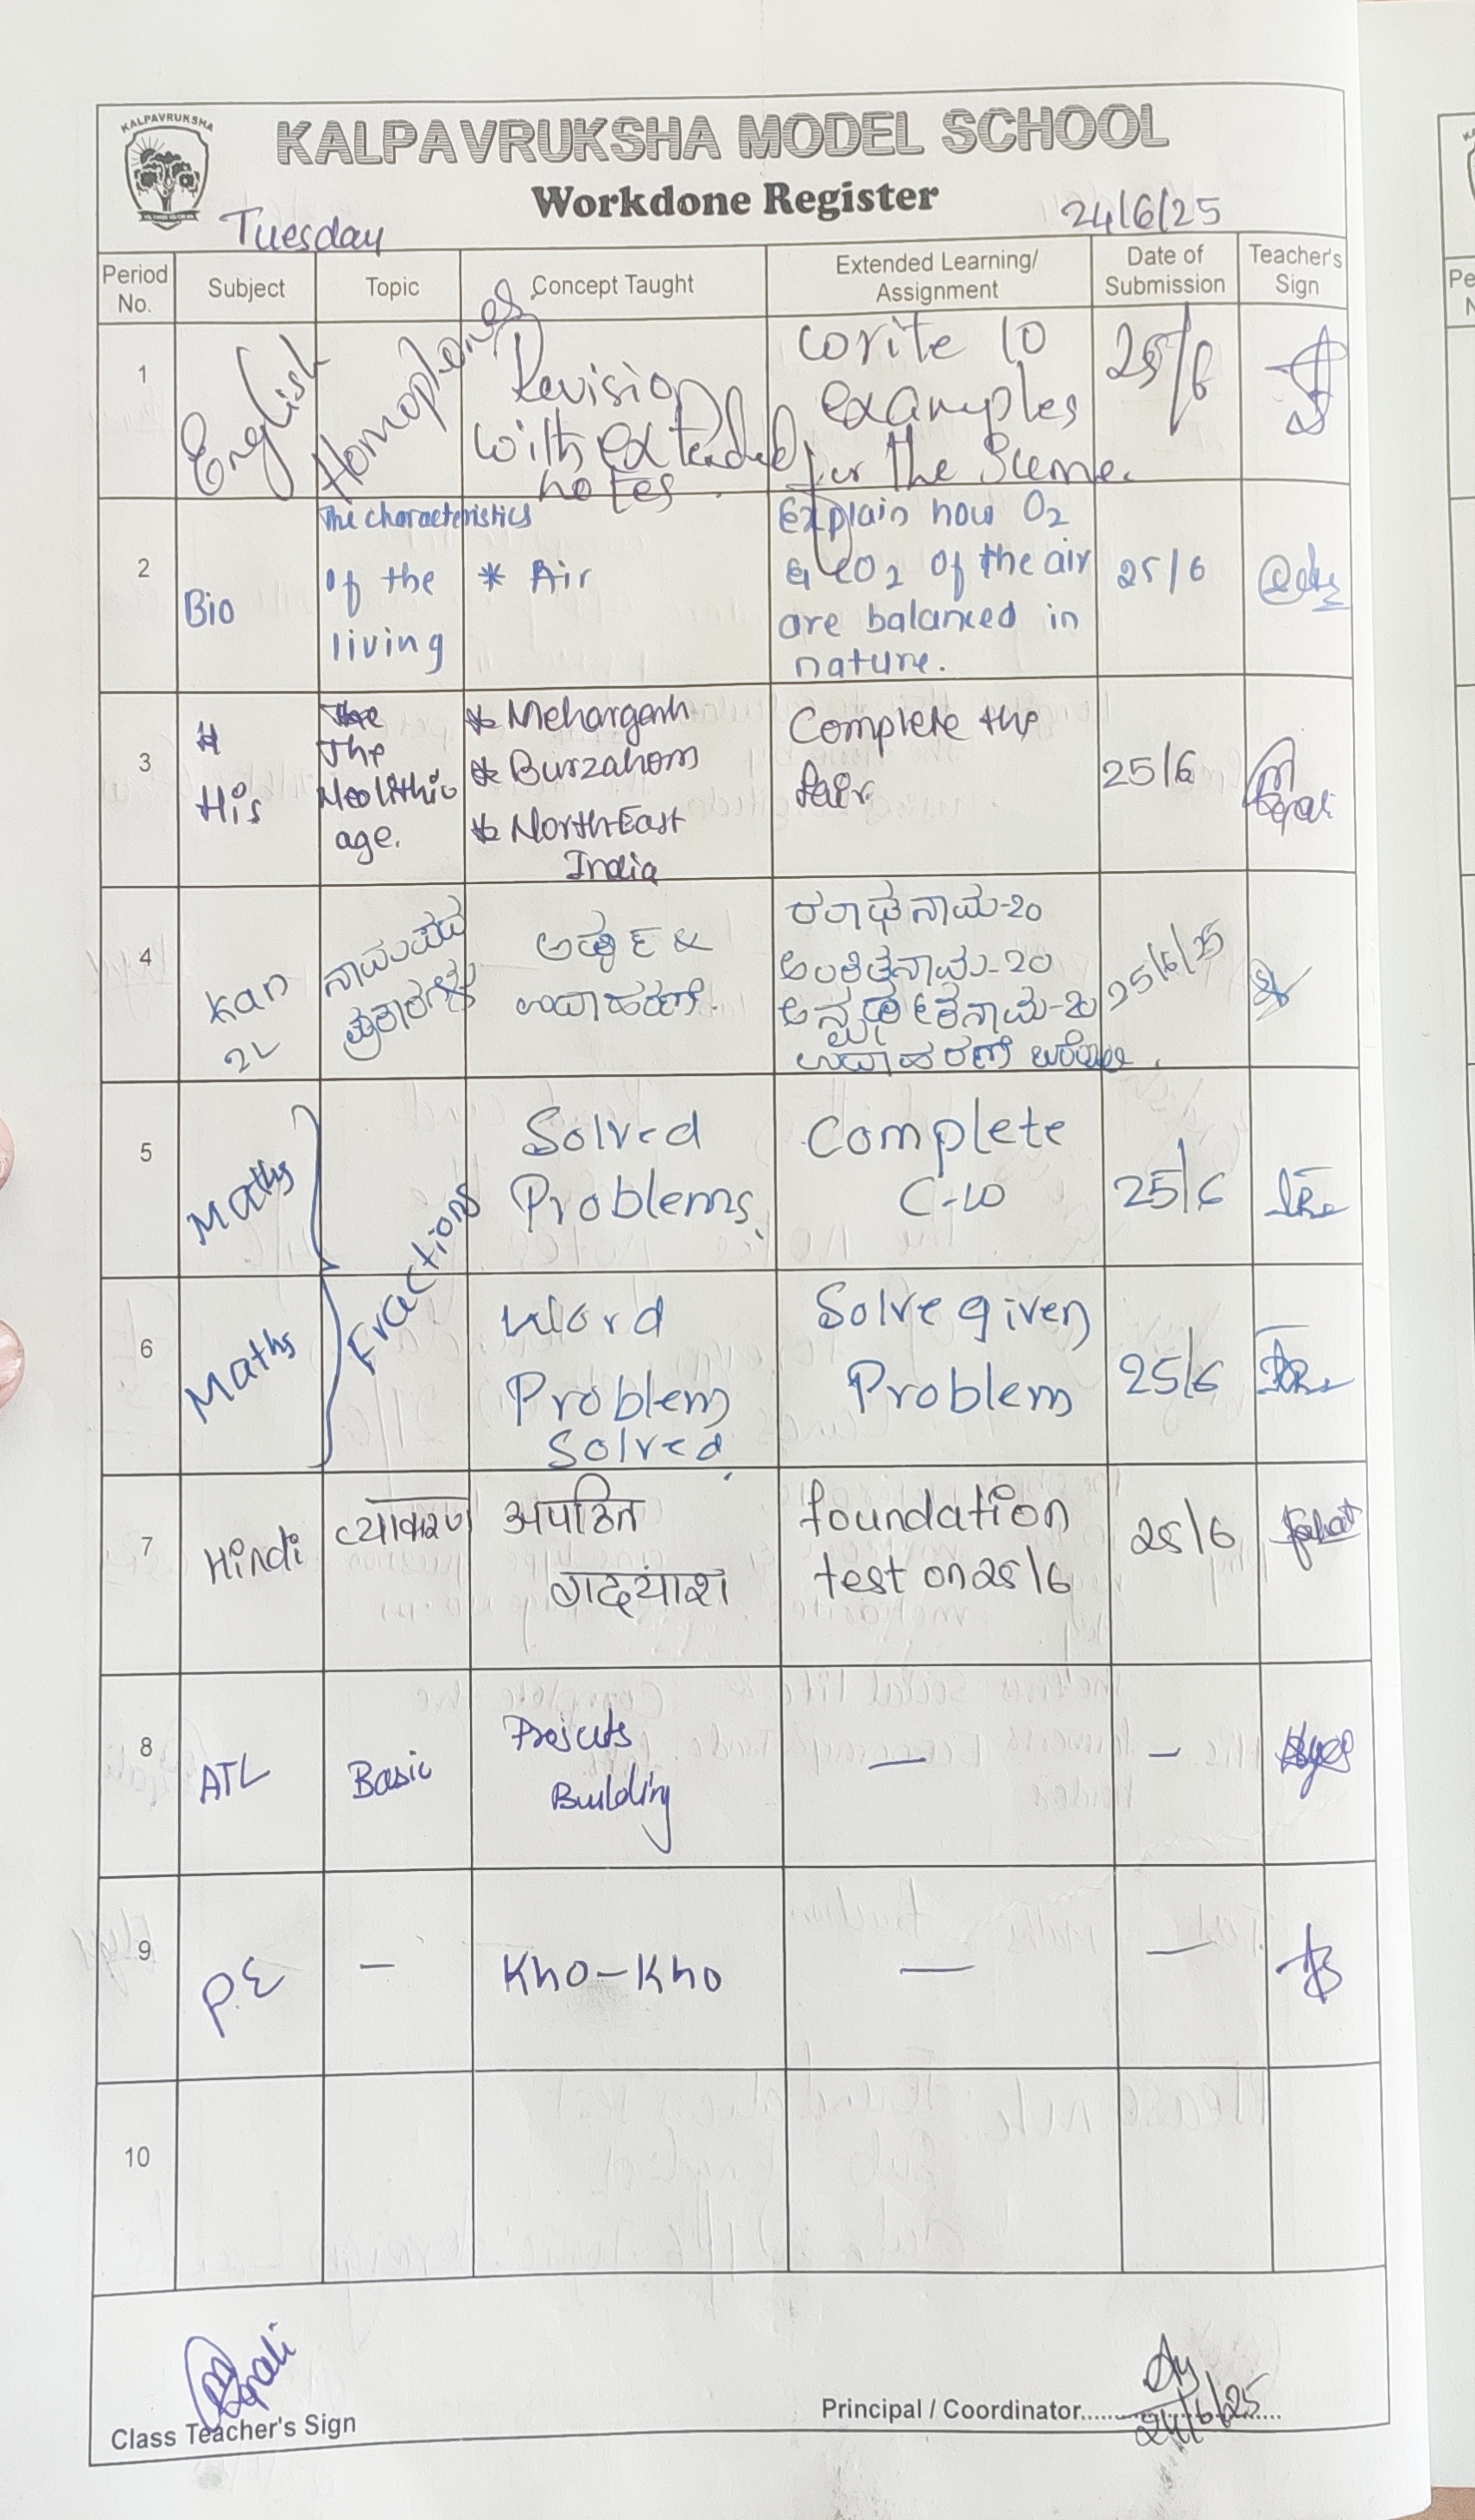 KALPAVRUKSHA
KALPAVRUKSHA MODEL SCHOOL
Workdone Register
Tuesday
24/6/25
Period No.
Subject
Topic
Concept Taught
Extended Learning/ Assignment
Date of Submission
Teacher's Sign
1
English
Homophones
Revision
with extended
notes.
write 10
examples
for the Same.
25/6
2
Bio
The characteristics
of the
living
* Air
Explain how O2
& CO2 of the air
are balanced in
nature.
25/6
3
His
The
Neolithic
age.
* Mehargarh
* Burzahom
* North-East
India
Complete the
fair
25/6
4
Kan
2L
ನಾಮಪದ
ಪ್ರಕಾರಗಳು
ಅರ್ಥ &
ಉದಾಹರಣೆ.
ರೂಢನಾಮ-20
ಅಂಕಿತನಾಮ-20
ಅನ್ವರ್ಥಕನಾಮ-20
ಉದಾಹರಣೆ
25/6/25
5
Maths
Fractions
Solved
Problems.
Complete
C-W
25/6
6
Maths
Word
Problem
Solved.
Solve given
Problem
25/6
7
Hindi
व्याकरण
अपठित
गद्यांश
foundation
test on 25/6
25/6
8
ATL
Basic
Projects
Building
—
—
9
P.E
—
Kho-Kho
—
—
10
Class Teacher's Sign
Principal / Coordinator..............................
24/6/25